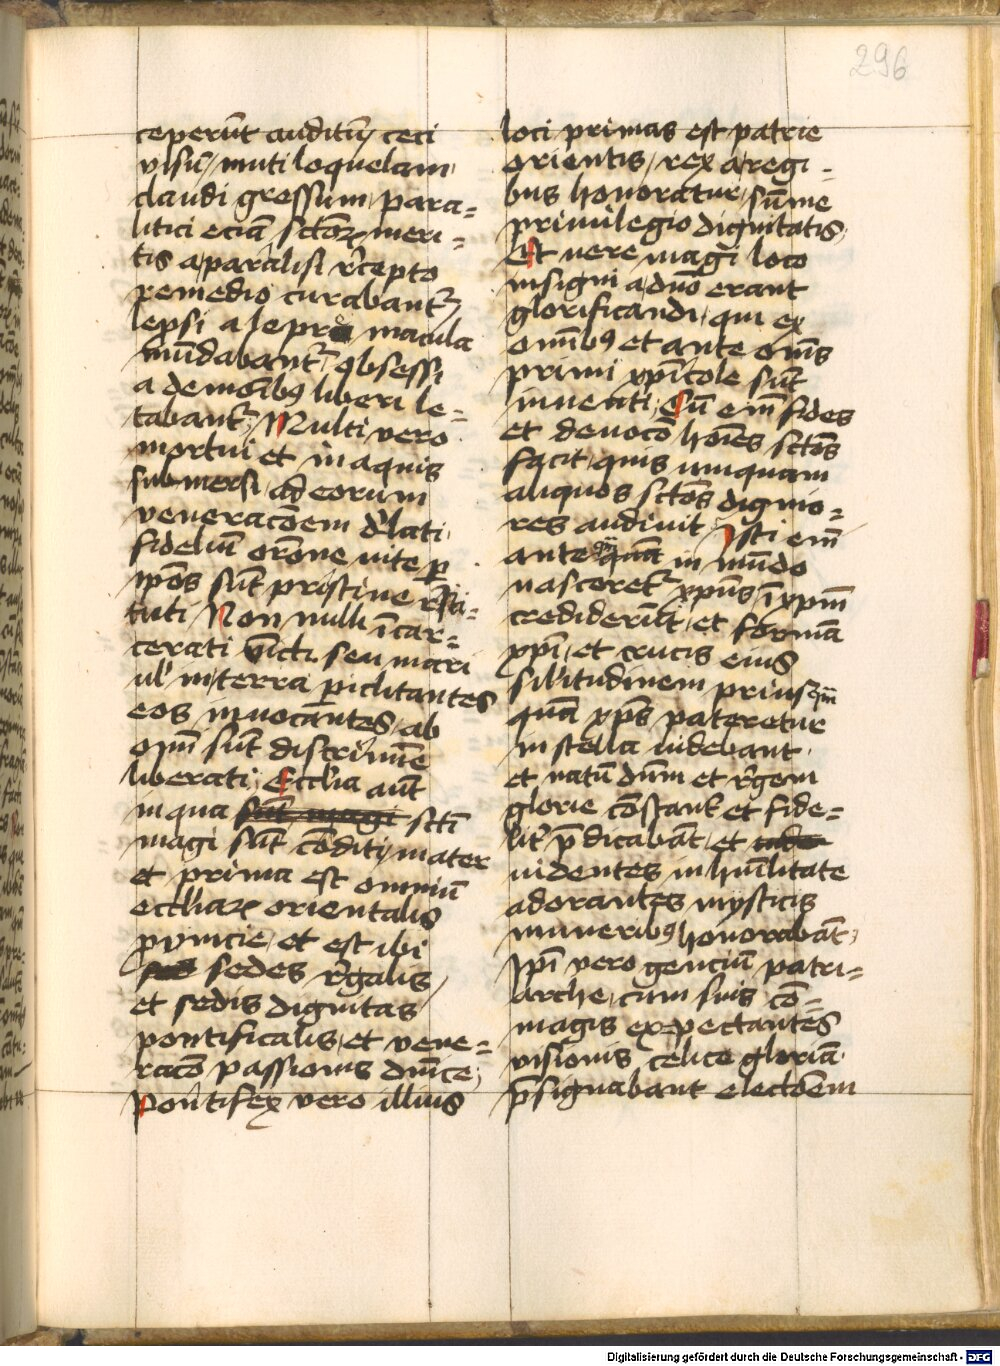 296
ceperūt auditū / ceci
visū / muti loquelam
claudi gressum / para=
litici eciā sctōꝝ meri=
tis a paralisi r̄cepto
remedio curabantᷣ
leprsi a lepra macula
mūdabantᷣ / obsessi
a demōibꝰ liberi le=
tabantᷣ Multi vero
mortui et in aquis
submersi / ad eorum
veneracōem d'lati
fideliū orōne vite p̲
ip̄os sūt pristine r̄sti=
tuti Non nulli īcar=
cerati vīcti seu mari
ul' in terra piclitantes
eos invocantes / ab
om̄i sūt discrimīe
liberati / Eccl'ia aūt
in qua sūt magi sctī
magi sūt cōditi / mater
et prima est omniū
eccl'iaꝝ orientalis
p̱vincie / et est ibi
sedes r̄galis
et sedis dignitas
pontificalis / et vene=
racō passionis dn̄ice /
Pontifex vero illius
loci primas est patrie
orientis / rex a regi=
bus honoratur / sūme
privilegio dignitatis
Et vere magi loco
insigni a dn̄o erant
glorificandi / qui ex
om̄ibꝰ et ante om̄s
primi xp̄icole sūt
inventi / Cū em̄ fides
et devocō hōies sctōs
facit / quis umquam
aliquos sctōs dignio=
res audivit / Isti em̄
ante quā in mūdo
nasceretᷣ xp̄us / ī xp̄m
crediderūt / et formā
xp̄i / et crucis eius
sil'itudinem prius
quā xp̄s pateretur
in stella videbant
et natū dn̄m et r̄gem
glorie cōstant' et fide=
lit' p̄dicabāt / et
videntes in hūilitate
adorantes mysticis
muneribꝰ honorabāt /
Ip̄i vero genciū patri=
arche / cum suis cō=
magis expectantes
visionis celice gloriā
p̄signabant electōem
Digitalisierung gefördert durch die Deutsche Forschungsgemeinschaft - DFG